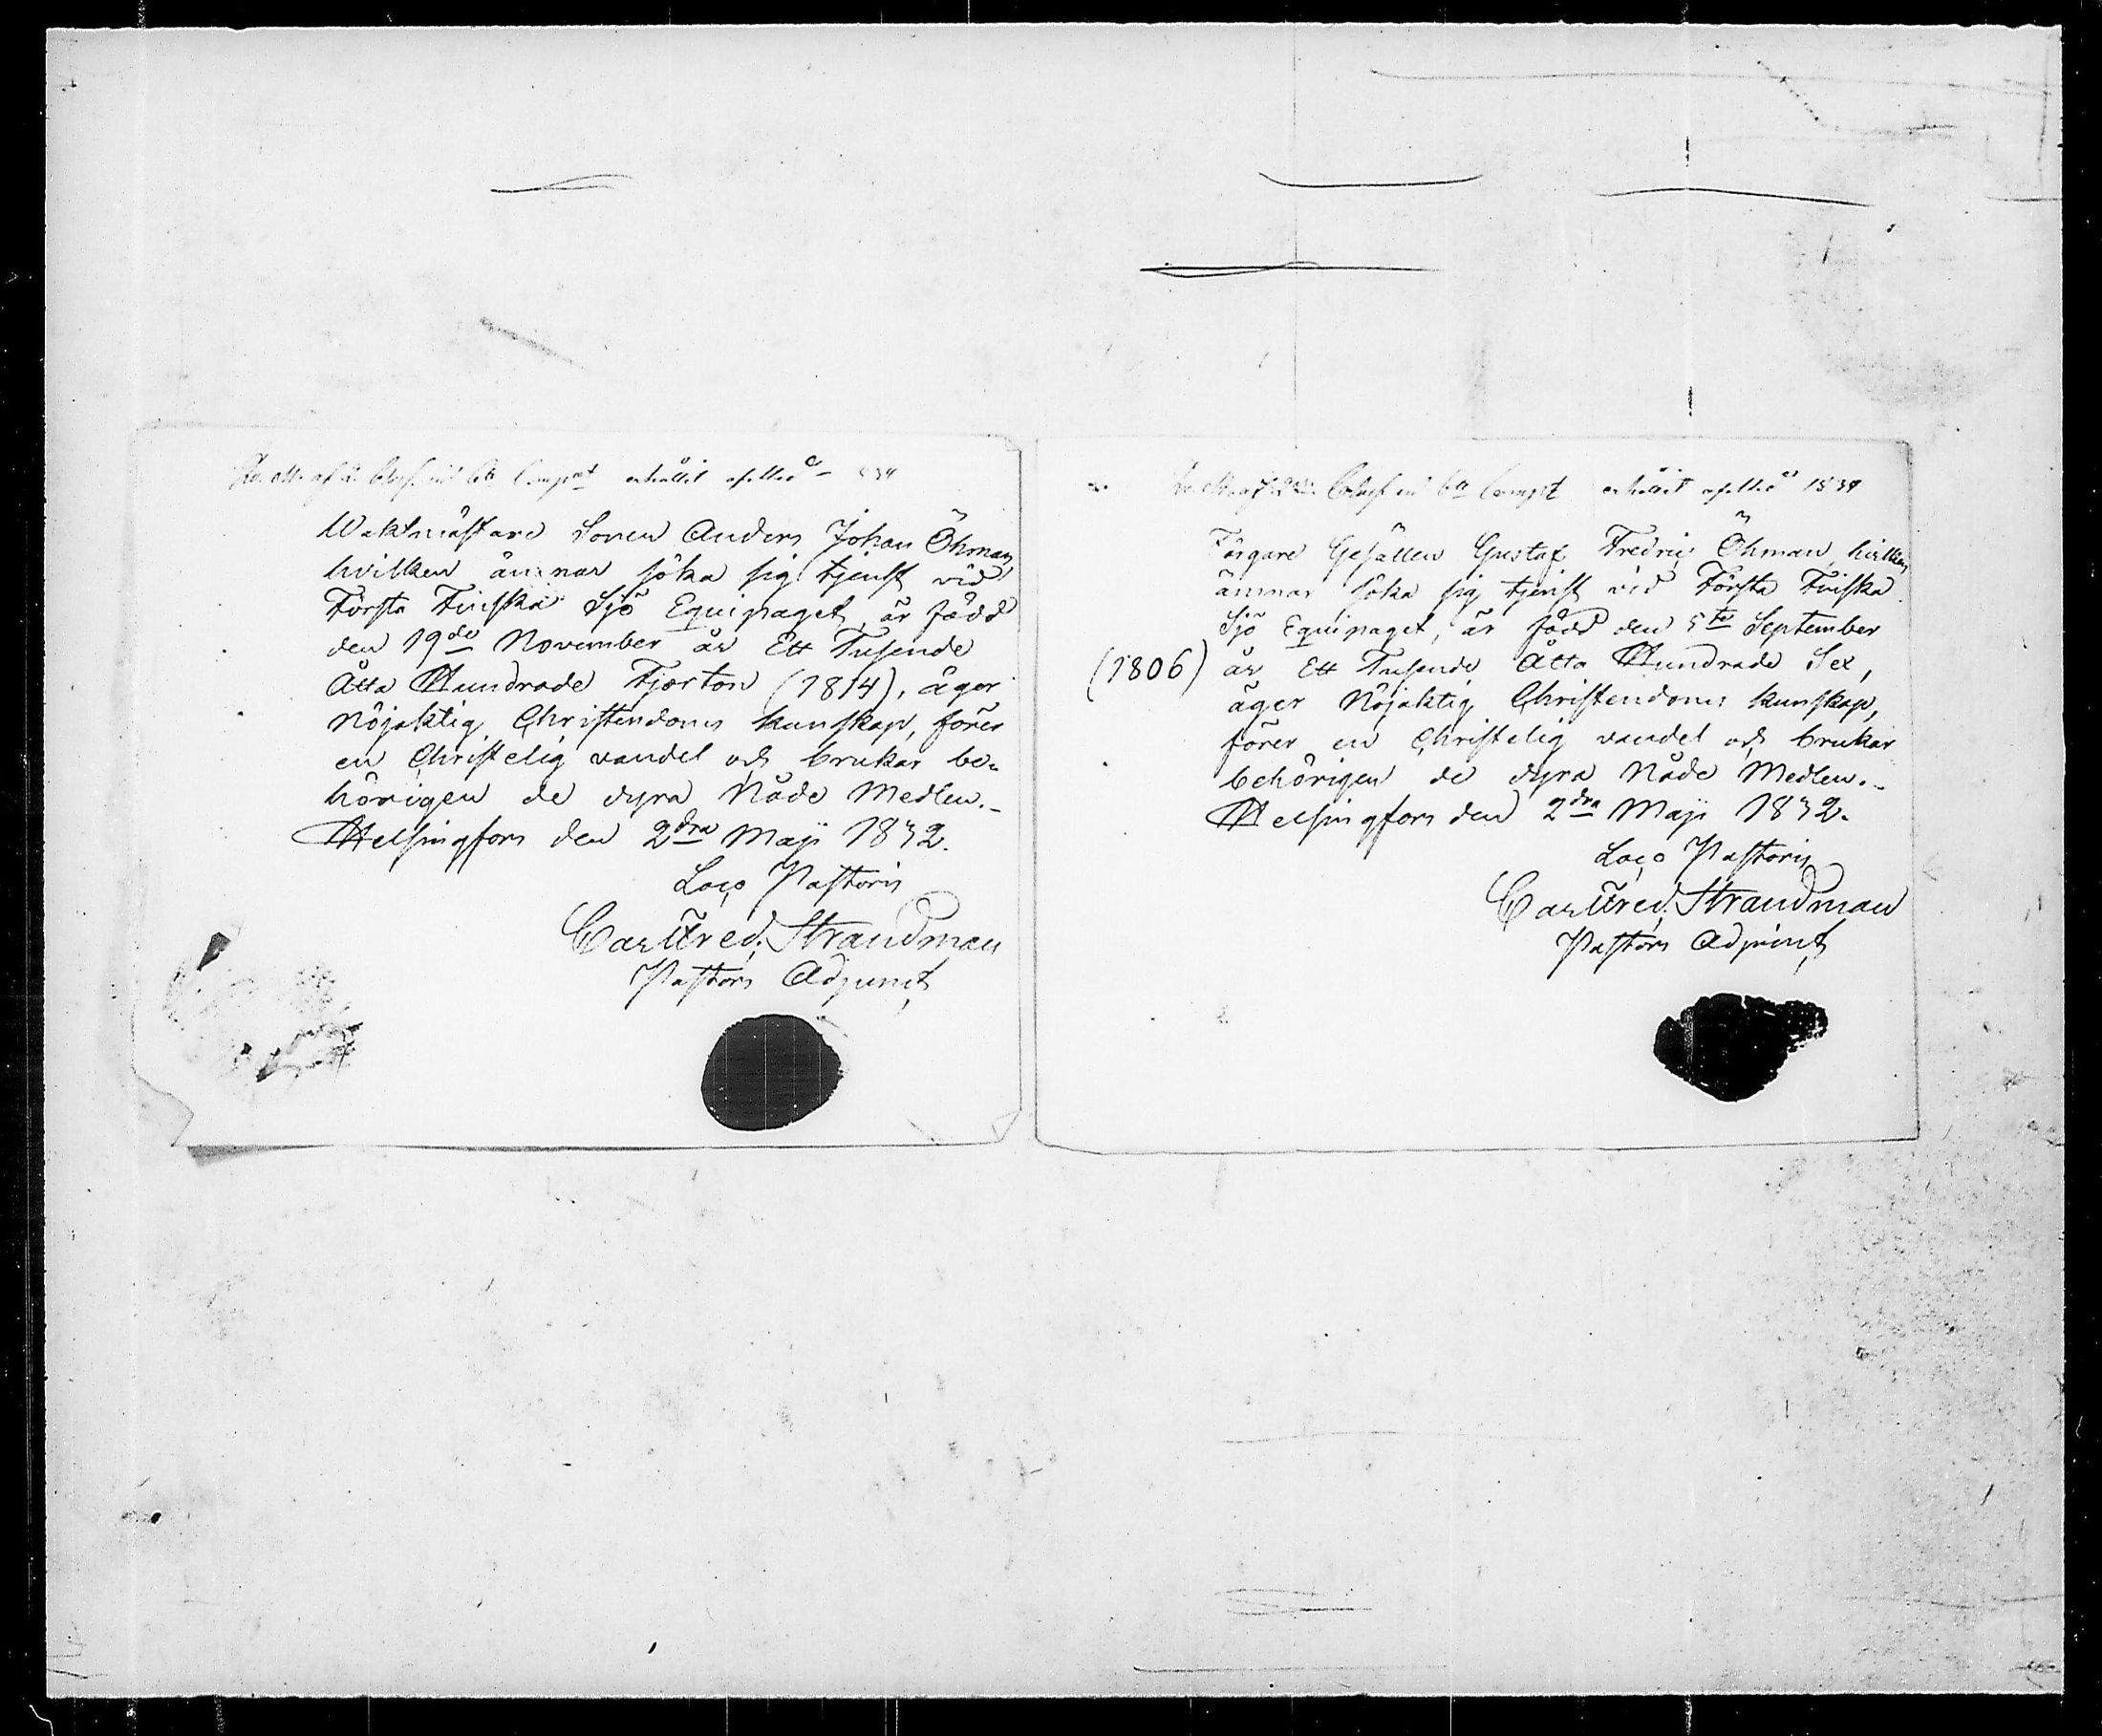 erhållit afsked 1834
Waktmästare Sonen Anders Johan Öhman,
hvilken ämnar söka sig tjenst vid
Första Finska Sjö Equipaget, är född
den 19de November år Ett Tusende
Åtta Hundrade Fjorton (1814), äger
Nöjaktig Christendoms kunskap, förer
en Christelig vandel och brukar be-
hörigen de dyra Nåde Medlen.-
Helsingfors den 2dra Maji 1832.
Loco Pastoris
Carl Fred. Strandman
Pastors Adjunct
6te Compt erhållit afsked 1834
Färgare Gesällen Gustaf Fredric Öhman, hvilken
ämnar söka sig tjenst vid Första Finska
Sjö Equipaget, är född den 5te September
(1806) år Ett Tusende Åtta Hundrade Sex,
äger Nöjaktig Christendoms kunskap,
förer en Christelig vandel och brukar
behörigen de dyra Nåde Medlen.-
Helsingfors den 2dra Maji 1832.
Loco Pastoris
Carl Fred. Strandman
Pastors Adjunct